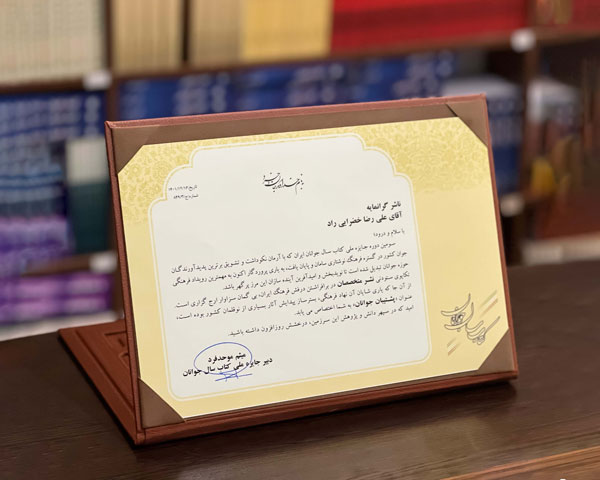 به نام خداوند جان آفرین
تاریخ: ۱۴۰۱/۱۲/۱۳
ناشر گرانمایه
آقای علی رضا خضرایی راد
با سلام و درود؛
سومین دوره جایزه ملی کتاب سال جوانان ایران که با آرمان نکوداشت و تشویق برترین پدیدآورندگان
جوان کشور در گستره فرهنگ نوشتاری سامان و پایان یافت، به یاری پروردگار اکنون به مهمترین رویداد فرهنگی
حوزه جوانان تبدیل شده است تا نویدبخش و امید آفرین آینده سازان این مرز پر گهر باشد.
تکاپوی ستودنی نشر متخصصان در برافراشتن درفش فرهنگ ایران، بی گمان سزاوار ارج گزاری است.
از آن جا که یاری شایان آن نهاد فرهنگی، بستر ساز پیدایش آثار بسیاری از نوقلمان کشور بوده است،
عنوان «پشتیبان جوانان» به شما اختصاص می یابد.
امید که در سپهر دانش و پژوهش این سرزمین، درخشش روزافزون داشته باشید.
میثم موحدفرد
دبیر جایزه ملی کتاب سال جوانان